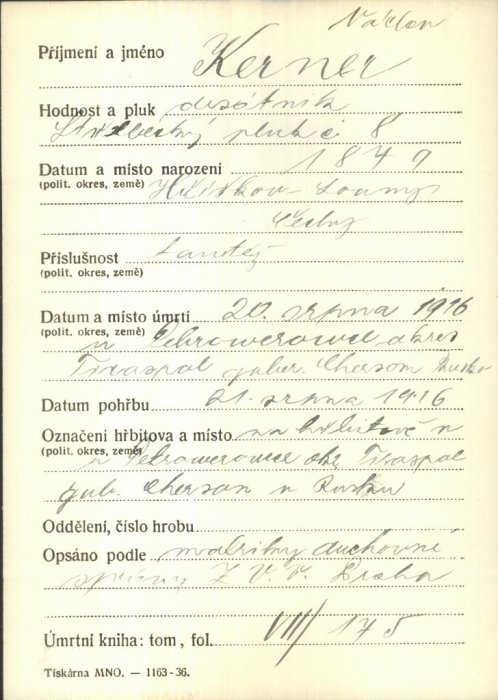 Václav
Příjmení a jméno Kerner
Hodnost a pluk desátník
Střelecký pluk č 8
Datum a místo narození 1849
(polit. okres, země)
Čechy
Příslušnost tamtéž
(polit. okres, země)
Datum a místo úmrtí 20. srpna 1916
(polit. okres, země) u Petrowerowce okres
Tiraspol guber. Cherson Rusko
Datum pohřbu 21. srpna 1916
Označení hřbitova a místo na hřbitově u
(polit. okres, země) u Petrowerowce okr. Tiraspol
gub. Cherson v Rusku
Oddělení, číslo hrobu
Opsáno podle matriky duchovní
správy Z. V. V. Praha
Úmrtní kniha: tom, fol. VII/175
Tiskárna MNO. — 1163-36.